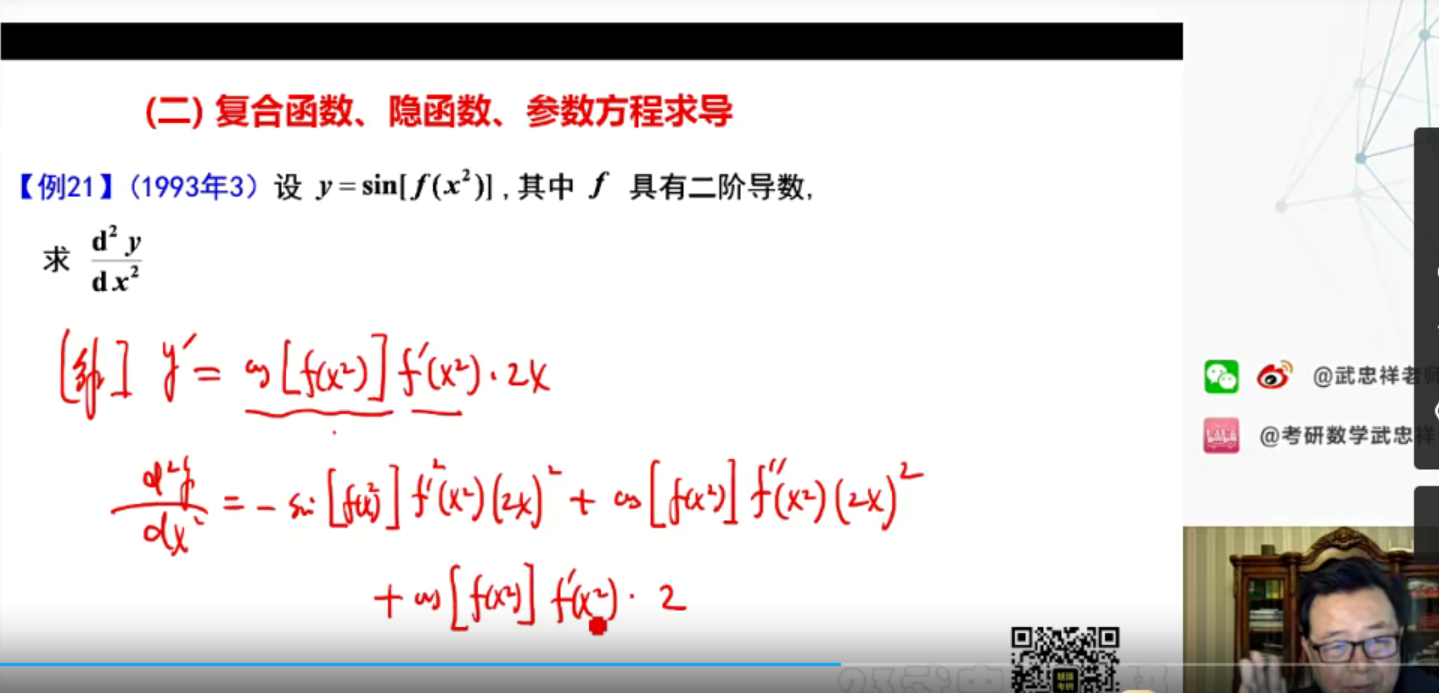 (二) 复合函数、隐函数、参数方程求导
【例21】（1993年3）设 y = sin[f(x²)] , 其中 f 具有二阶导数,
求 d² y / d x²
[解] y′ = cos[f(x²)] f′(x²)·2x
d²y / dx² = - sin[f(x²)] f′²(x²)(2x)² + cos[f(x²)] f″(x²)(2x)²
+ cos[f(x²)] f′(x²)· 2
@武忠祥老师
@考研数学武忠祥